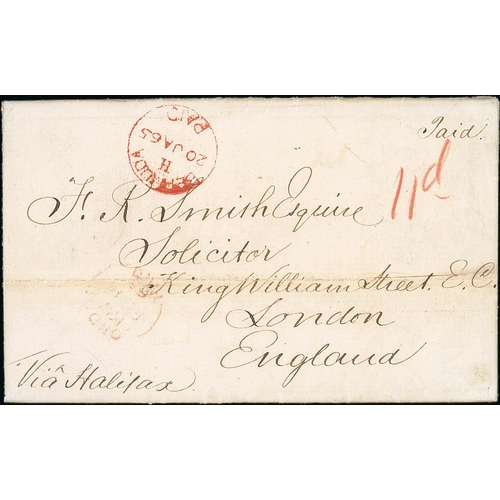 Paid.
BERMUDA
H
20 JA 65
PAID
11d
F. R. Smith Esquire
Solicitor
King William Street. E. C.
London
England
Viâ Halifax.